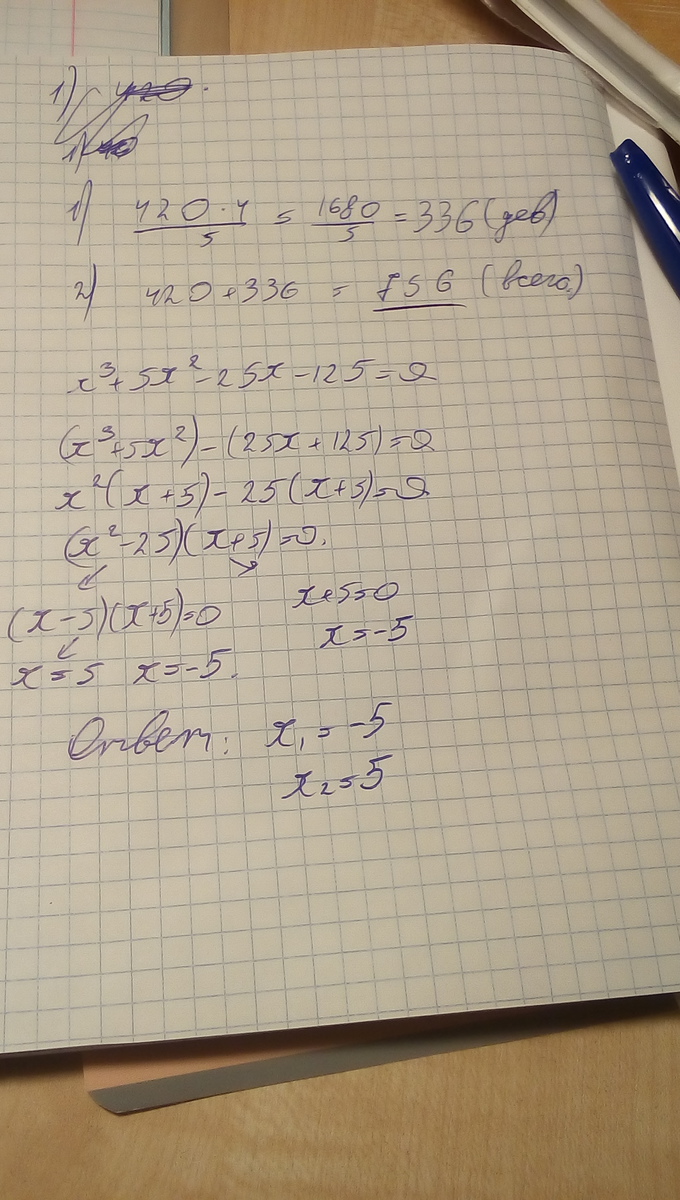 1) 420.
1)
1) 420·4/5 = 1680/5 = 336 (дев)
2) 420+336 = 756 (всего)
x³+5x²-25x-125=0
(x³+5x²)-(25x+125)=0
x²(x+5)-25(x+5)=0
(x²-25)(x+5)=0.
(x-5)(x+5)=0 x+5=0
x=5 x=-5. x=-5
Ответ: x₁=-5
x₂=5